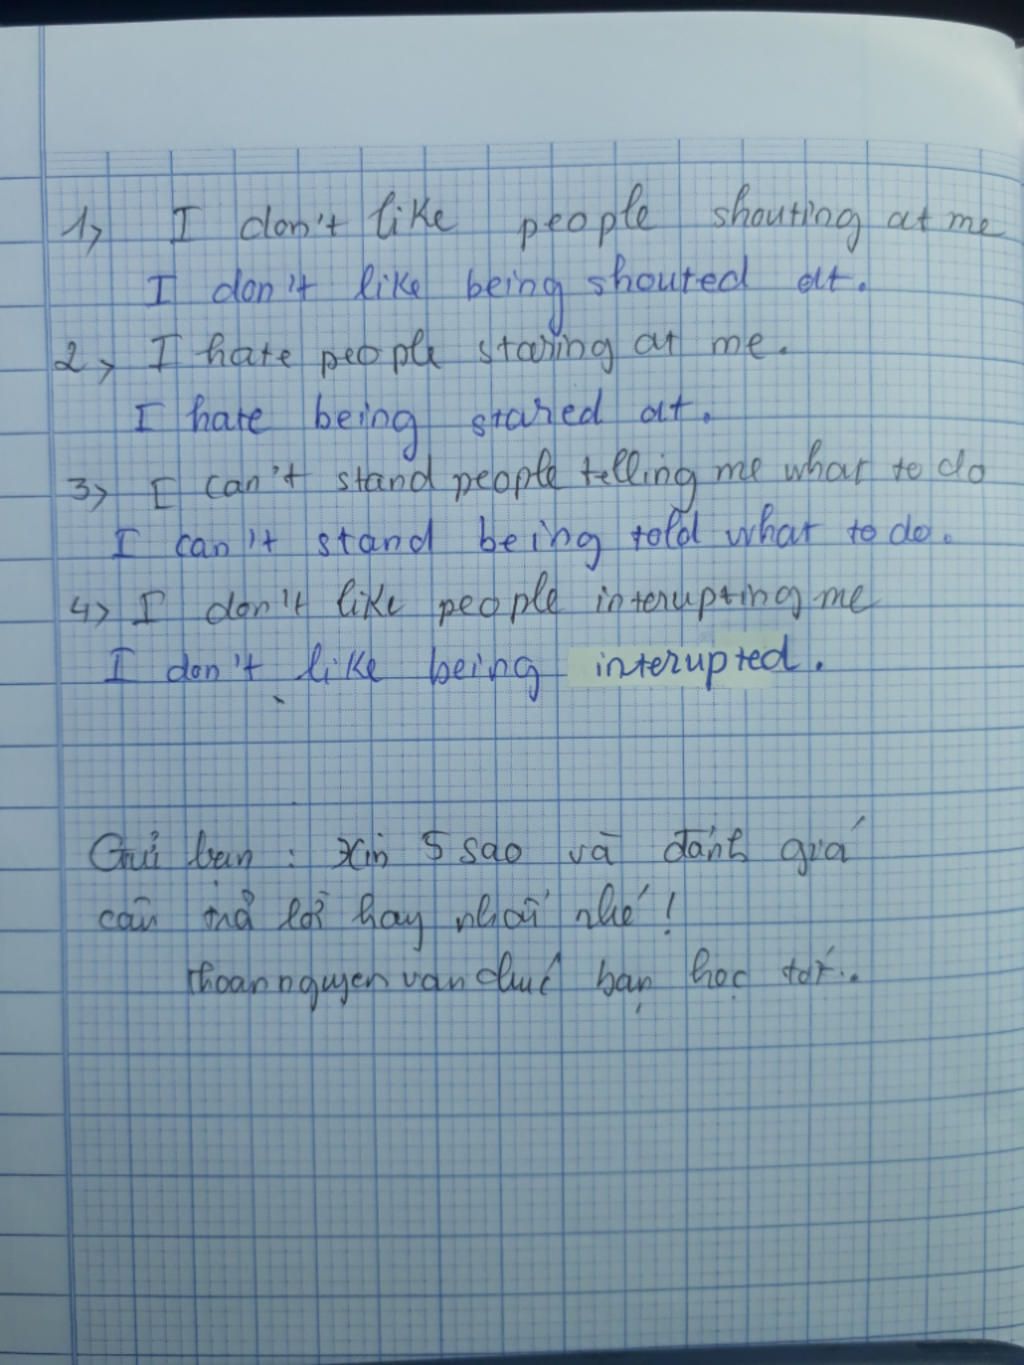 1> I don't like people shouting at me
I don't like being shouted at.
2> I hate people staring at me.
I hate being stared at.
3> I can't stand people telling me what to do
I can't stand being told what to do.
4> I don't like people interupting me
I don't like being interupted.
Gửi bạn : Xin 5 sao và đánh giá
câu trả lời hay nhất nhé !
thoannguyenvan chúc bạn học tốt..